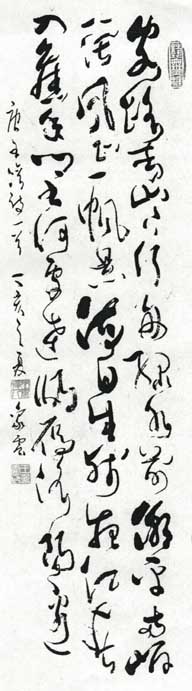 客路青山下行舟綠水前潮平兩岸
闊風正一帆懸海日生殘夜江春
入舊年鄉書何處達歸雁洛陽邊
唐王灣詩一首丁亥之夏